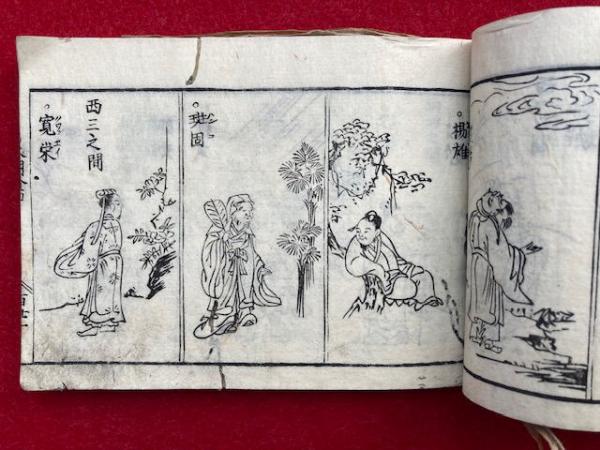 楊雄
班固
西三之間
寛栄